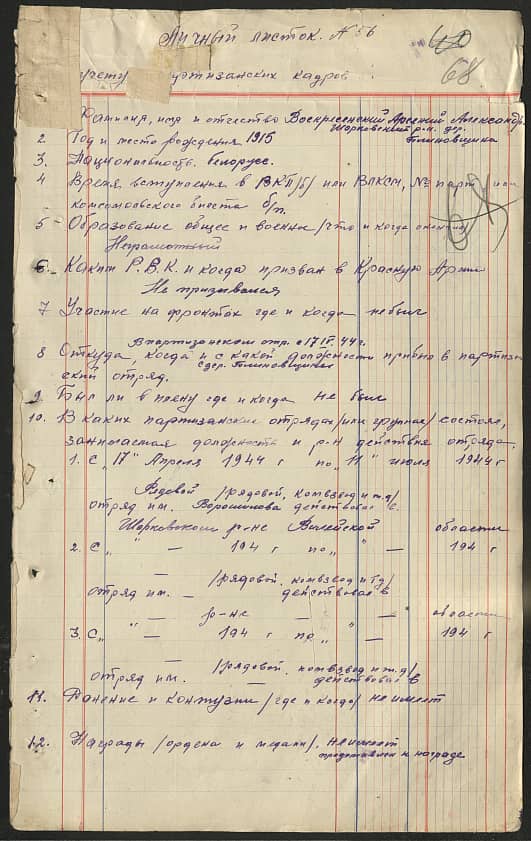 Личный листок. № 56
40
68
учету партизанских кадров.
Фамилия, имя и отчество Воскресенский Арсений Александр.
2. Год и место рождения 1915 Шарковский р-н. дер.
3. Национальность. белорусс.
4 Время вступления в ВКП/б/ или ВЛКСМ, № парт. или
комсомольского билета б/п.
5 Образование общее и военны /что и когда окончил/
Неграмотный
6. Каким Р.В.К. и когда призван в Красную Арми
Не призывался
7 Участие на фронтах где и когда не был
В партизанском отр. с 17 IV. 44 г.
8 Откуда, когда и с какой должности прибыл в партизан
с дер.
ский отряд.
9. Был ли в плену где и когда не был
10. В каких партизанских отрядах /или группах/ состоял,
занимаемая должность и р-н действия отряда.
1. С „17" Апреля 1944 г по „11" июля 1944 г
Рядовой /рядовой, комвзвод и т.д/
отряд им. Ворошилова действовал в
Шарковском р-не Вилейской области
2. С „ " — 194 г по „ " — 194 г
— /рядовой, комвзвод и т д/
отряд им. — действовал в
— р-не — области
3. С „ " — 194 г по „ " — 194 г
— /рядовой, комвзвод и т.д/
отряд им. — действовал в
11. Ранение и контузии /где и когда/ не имеет
12. Награды /ордена и медали/. не имеет
представлен к награде